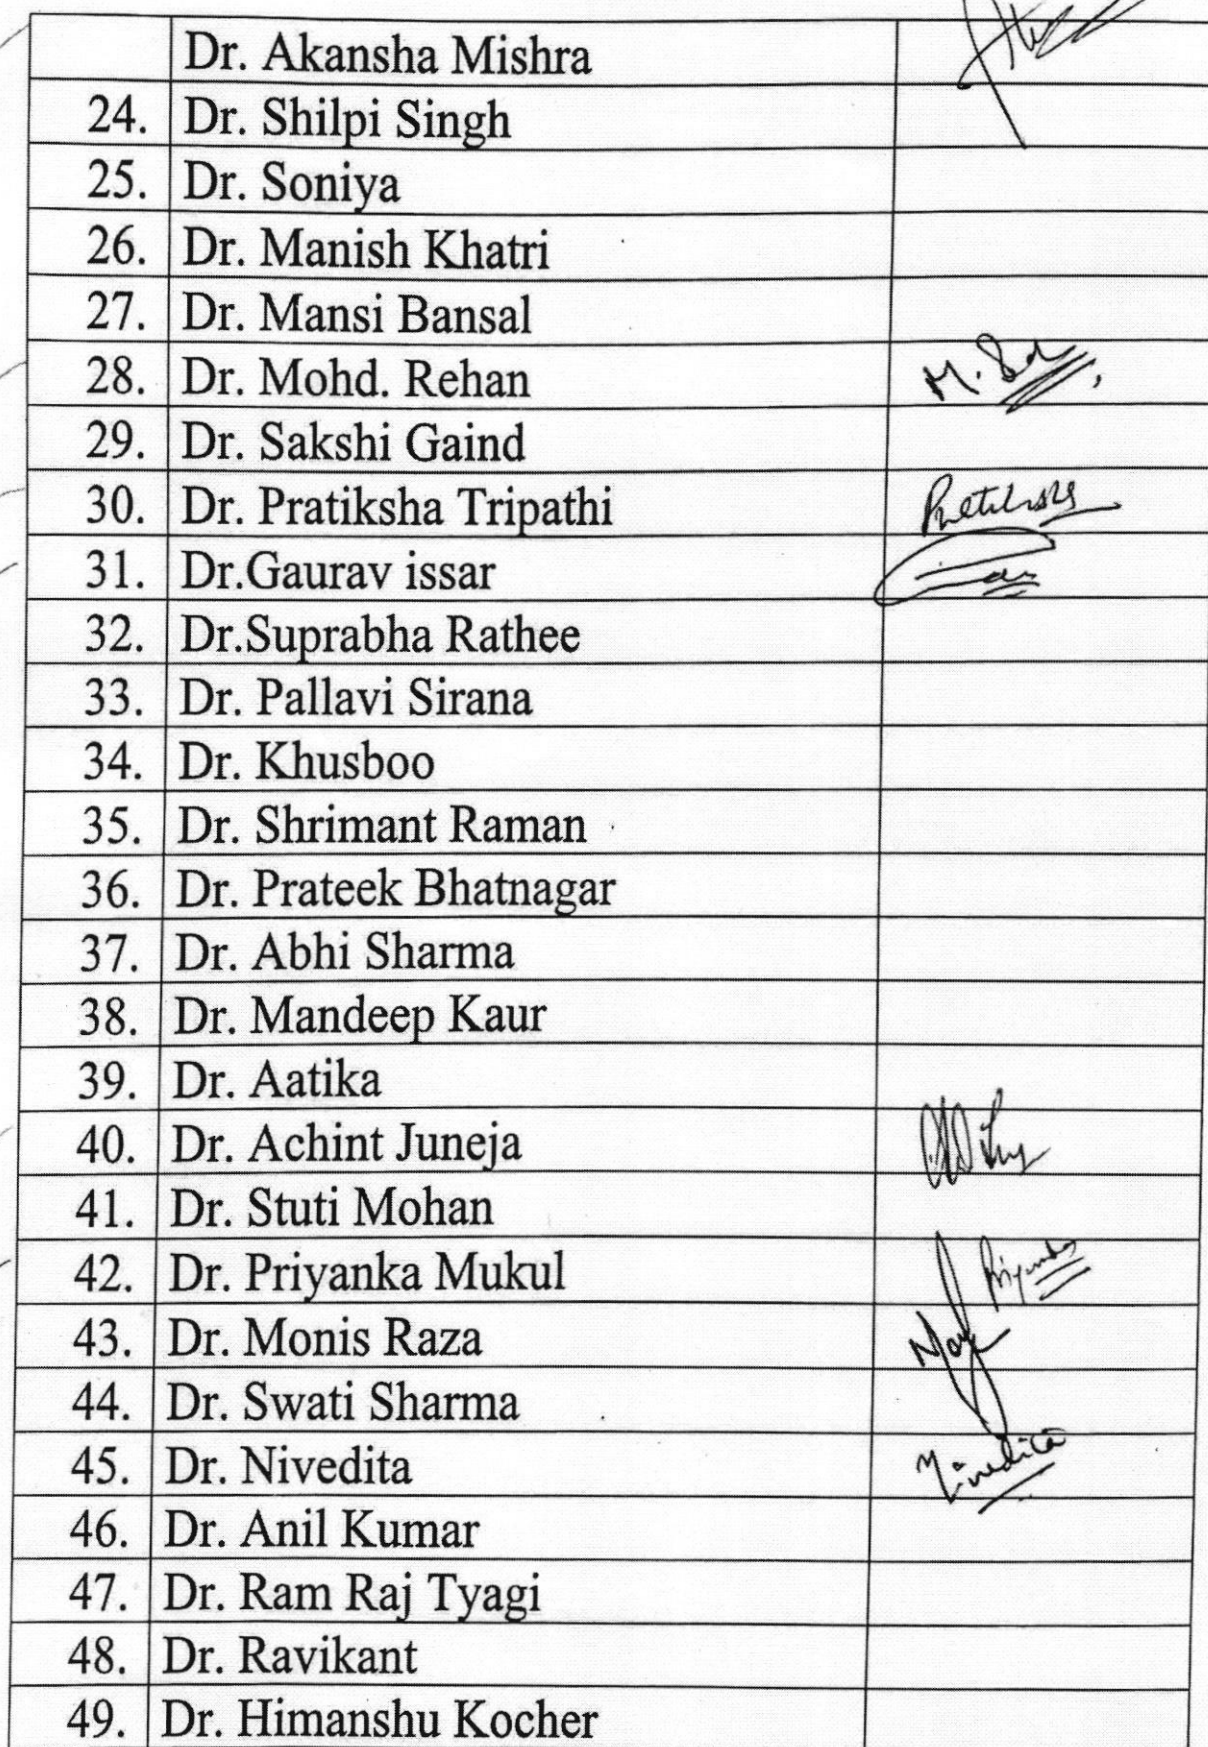 Dr. Akansha Mishra
24. Dr. Shilpi Singh
25. Dr. Soniya
26. Dr. Manish Khatri
27. Dr. Mansi Bansal
28. Dr. Mohd. Rehan
29. Dr. Sakshi Gaind
30. Dr. Pratiksha Tripathi
31. Dr.Gaurav issar
32. Dr.Suprabha Rathee
33. Dr. Pallavi Sirana
34. Dr. Khusboo
35. Dr. Shrimant Raman
36. Dr. Prateek Bhatnagar
37. Dr. Abhi Sharma
38. Dr. Mandeep Kaur
39. Dr. Aatika
40. Dr. Achint Juneja
41. Dr. Stuti Mohan
42. Dr. Priyanka Mukul
43. Dr. Monis Raza
44. Dr. Swati Sharma
45. Dr. Nivedita Nivedita
46. Dr. Anil Kumar
47. Dr. Ram Raj Tyagi
48. Dr. Ravikant
49. Dr. Himanshu Kocher